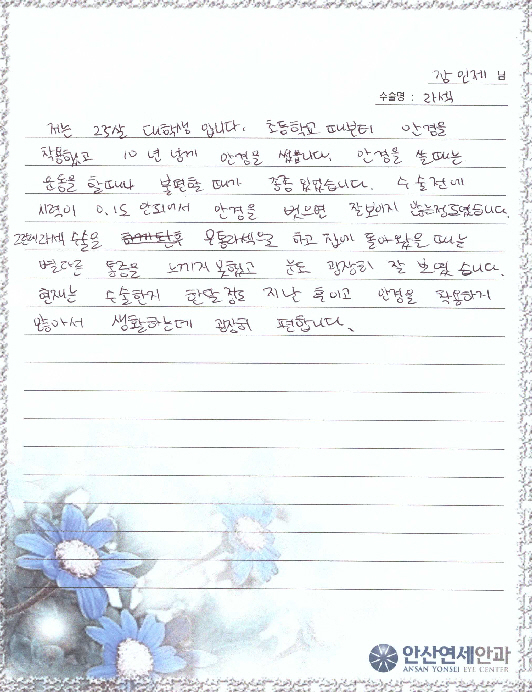 강인제 님
수술명 : 라섹
저는 25살 대학생 입니다. 초등학교 때부터 안경을
착용했고 10년 넘게 안경을 썼습니다. 안경을 쓸때는
운동을 할때나 불편할 때가 종종 있었습니다. 수술전에
시력이 0.1도 안되어서 안경을 벗으면 잘보이지 않는정도였습니다.
라섹 수술을 하고 집에 돌아왔을 때는
별다른 통증을 느끼지 못했고 눈도 굉장히 잘 보였습니다.
현재는 수술한지 한달 정도 지난 후이고 안경을 착용하지
않아서 생활하는데 굉장히 편합니다.
안산연세안과
ANSAN YONSEI EYE CENTER